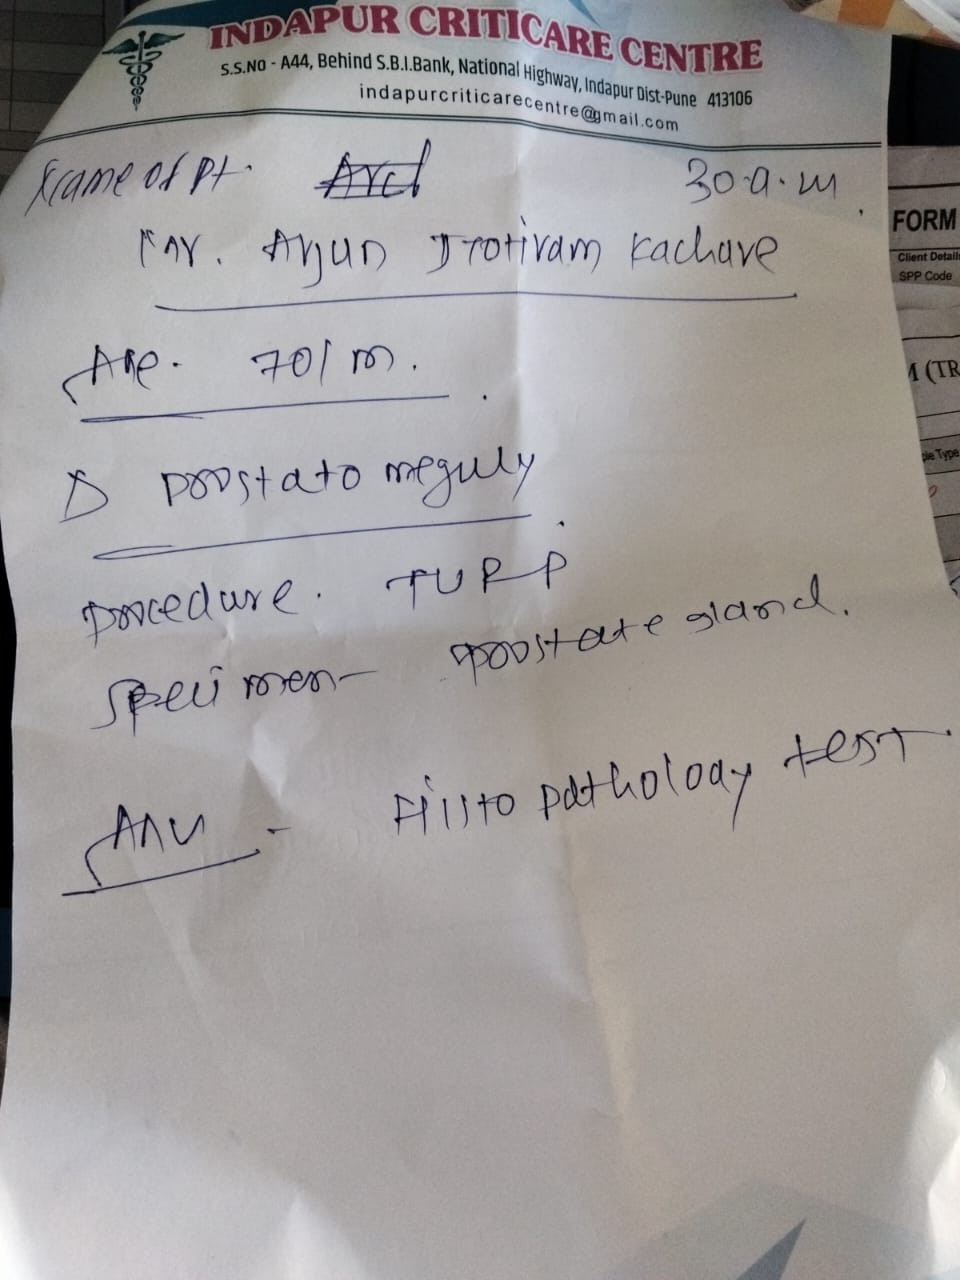 INDAPUR CRITICARE CENTRE
S.S.NO - A44, Behind S.B.I.Bank, National Highway, Indapur Dist-Pune 413106
indapurcriticarecentre@gmail.com
Name of Pt. 30.9.24
Mr. Arjun Jrotiram Kachare
Age. 70/m.
D prostatomeguly
procedure. TURP
specimen - prostate gland.
Adv - Histopathology test.
FORM
Client Details
SPP Code
(TR
ple Type